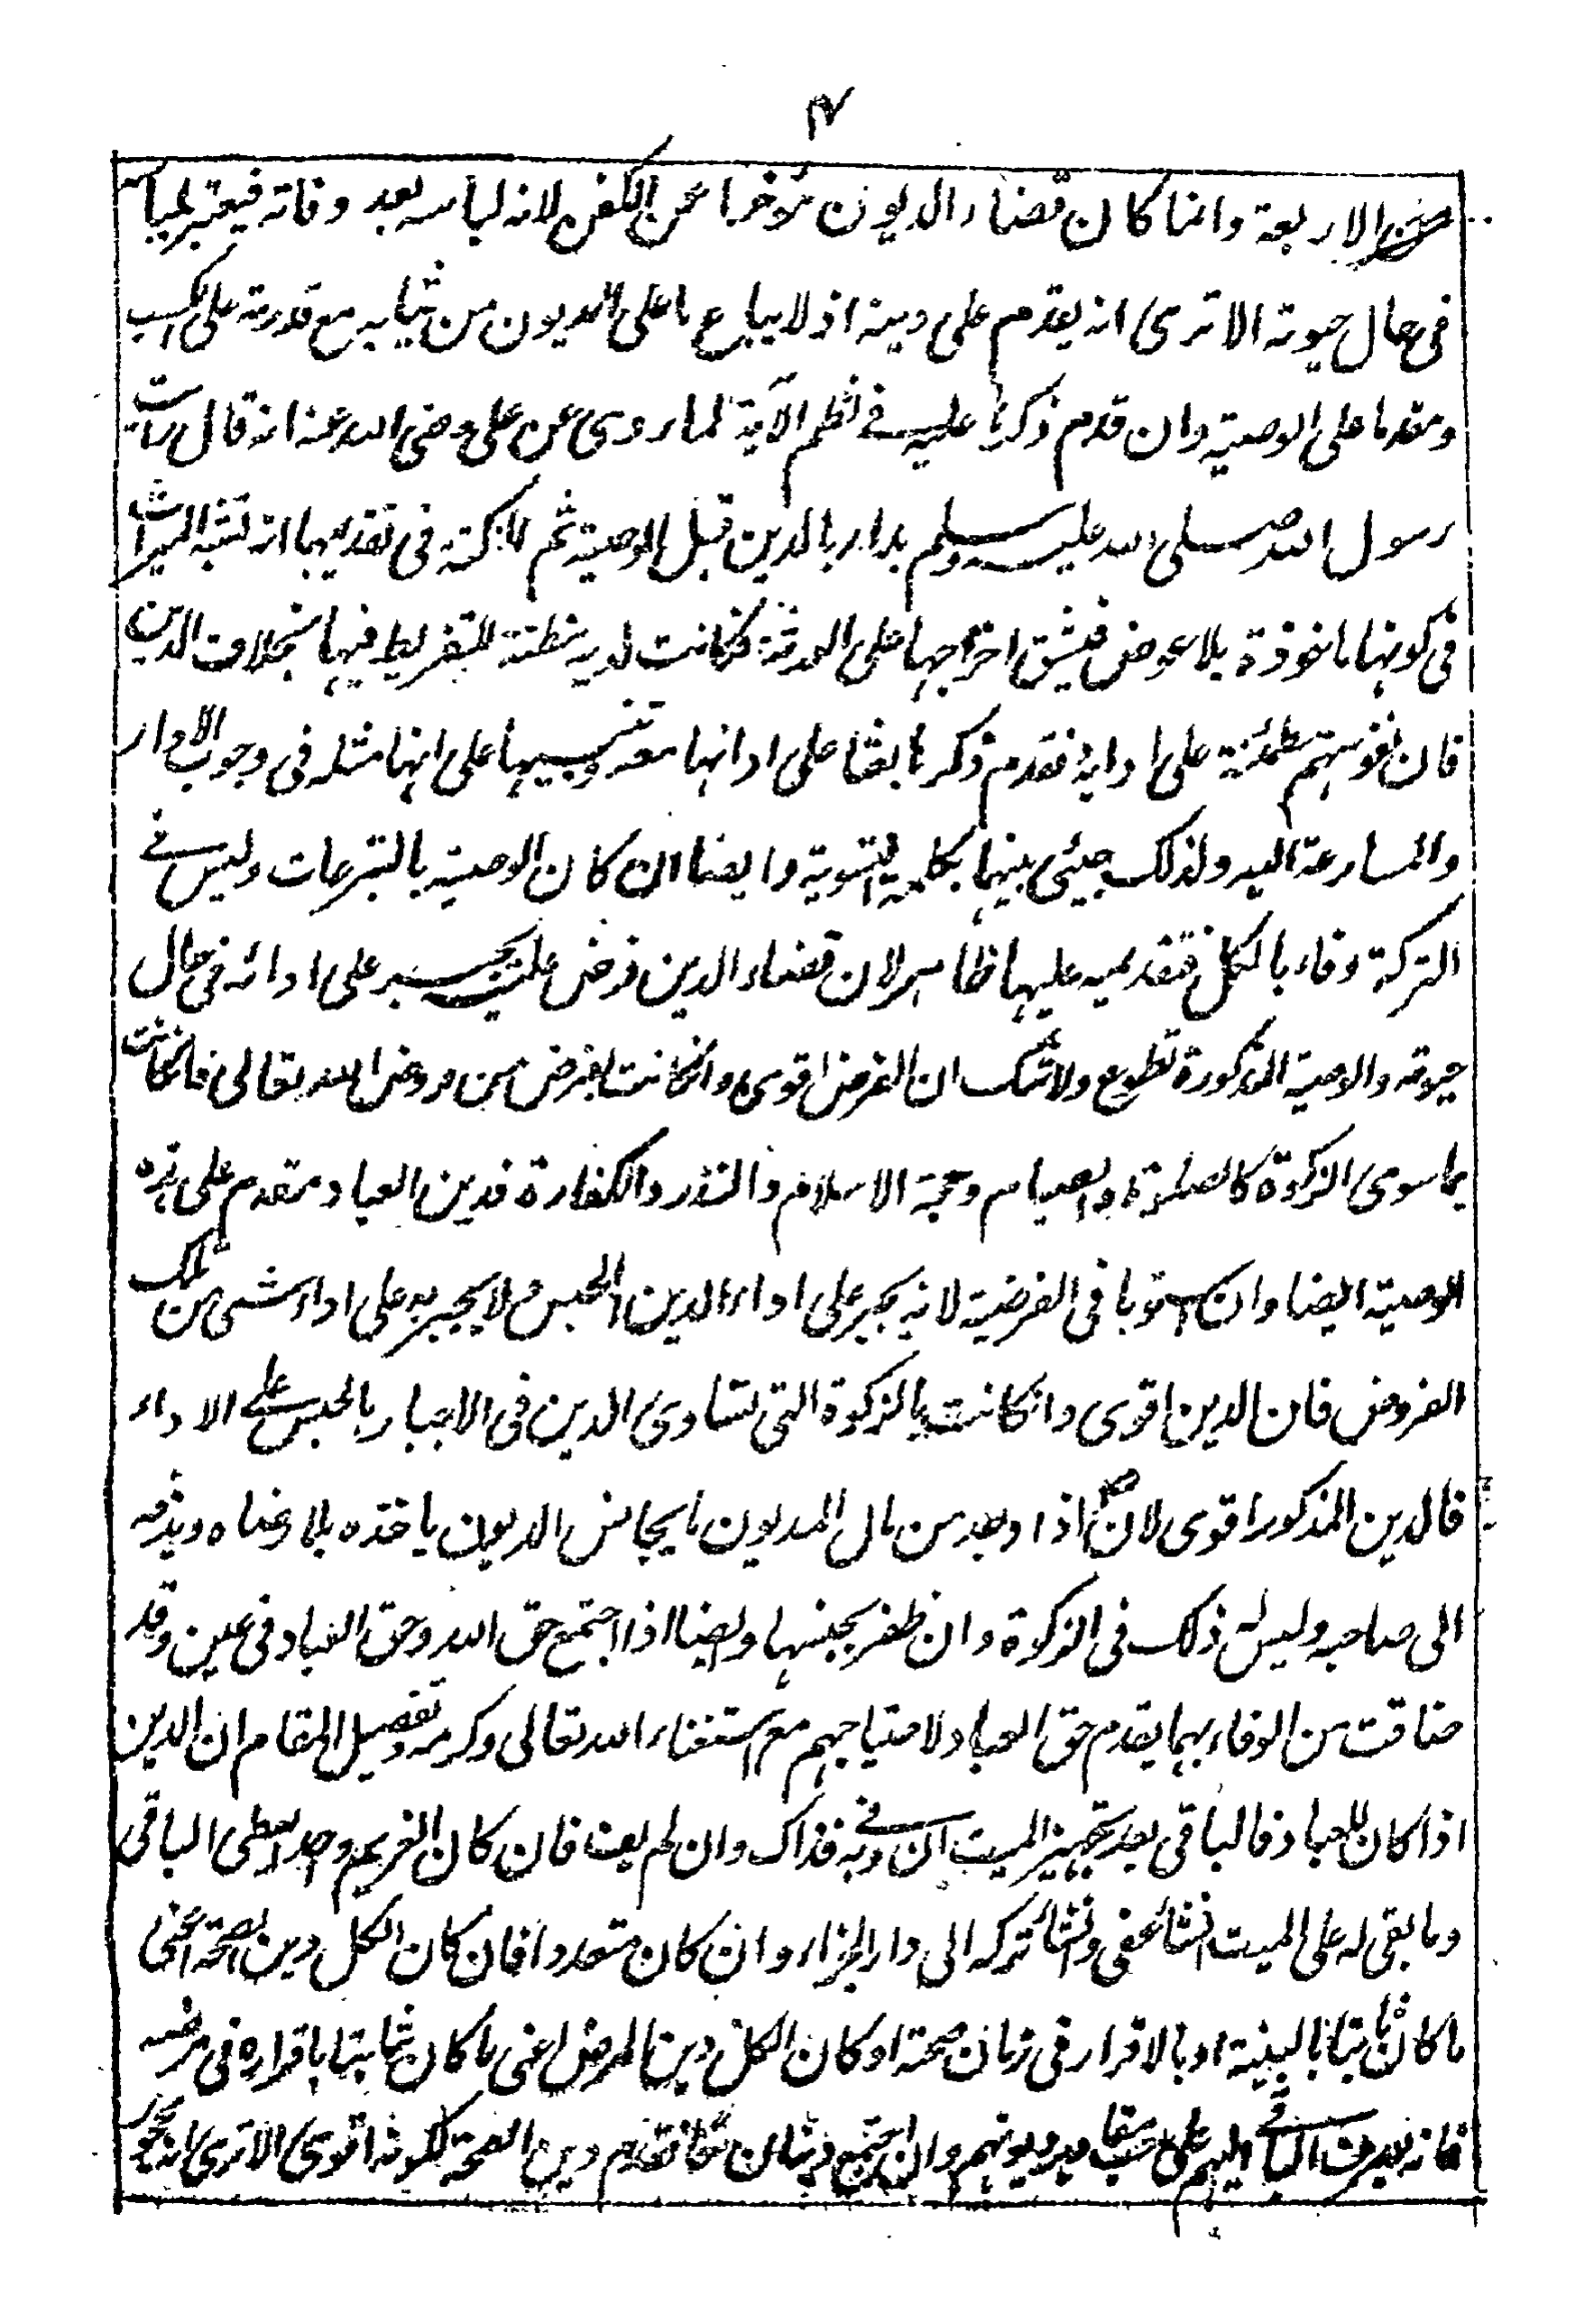 ٧
من الاربعة وانما كان قضاء الديون مؤخرا عن الكفن لانه لباسه بعد وفاته فيعتبر بلباسه
فى حال حيوته الا ترى انه يقدم على دينه اذ لا يباع ما على المديون من ثيابه مع قدرته على الكسب
ومقدما على الوصية وان قدم ذكرها عليه فى نظم الآية لما روى عن على رضى الله عنه انه قال رأيت
رسول الله صلى الله عليه وسلم بدأ بالدين قبل الوصية ثم النكتة فى تقديمها انه تشبه الميراث
فى كونها ماخوذة بلا عوض فيشق اخراجها على الورثة فكانت لديه مظنة للتفريط فيها بخلاف الدين
فان نفوسهم مطمئنة على ادايه فقدم ذكرها بعثا على ادائها معه وتنبيها على انها مثله فى وجوب الاداء
والمسارعة اليه ولذلك جيئ بينهما بكلمة التسوية وايضا ان كان الوصية بالتبرعات وليس فى
التركة وفاء بالكل فتقديمه عليها ظاهر لان قضاء الدين فرض عليه يجبر على ادائه فى حال
حيوته والوصية المذكورة تطوع ولا شك ان الفرض اقوى وانكانت بفرض من فروض الله تعالى فانكانت
بما سوى الزكوة كالصلوة والصيام وحجة الاسلام والنذر والكفارة فدين العباد مقدم على هذه
الوصية ايضا وان استوبا فى الفرضية لانه يجبر على اداء الدين بالحبس ولا يجبر به على اداء شئ من تلك
الفروض فان الدين اقوى وانكانت بالزكوة التى تساوى الدين فى الاجبار بالحبس على الاداء
فالدين المذكور اقوى لان صاحبه اذا وجد من مال المديون ما يجانس الديون ياخذه بلا رضاه ويدفعه
الى صاحبه وليس له ذلك فى الزكوة وان ظفر بجنسها وايضا اذا اجتمع حق الله وحق العباد فى عين وقد
ضاقت من الوفاء بهما يقدم حق العباد لاحتياجهم مع استغناء الله تعالى وكرمه وتفصيل المقام ان الدين
اذا كان للعباد فالباقى بعد تجهيز الميت ان وفى به فذاك وان لم يف فان كان الغريم واحدا يعطى الباقى
وما بقى له على الميت ان شاء عفى وان شاء تركه الى دار الجزاء وان كان متعددا فان كان الكل دين الصحة اعنى
ما كان ثابتا بالبينة او بالاقرار فى زمان صحته او كان الكل دين المرض اعنى ما كان ثابتا باقراره فى مرضه
فانه يصرف الباقى اليهم على حسب مقادير ديونهم وان اجتمع الدينان معا تقدم دين الصحة لكونه اقوى الا ترى انه محجور